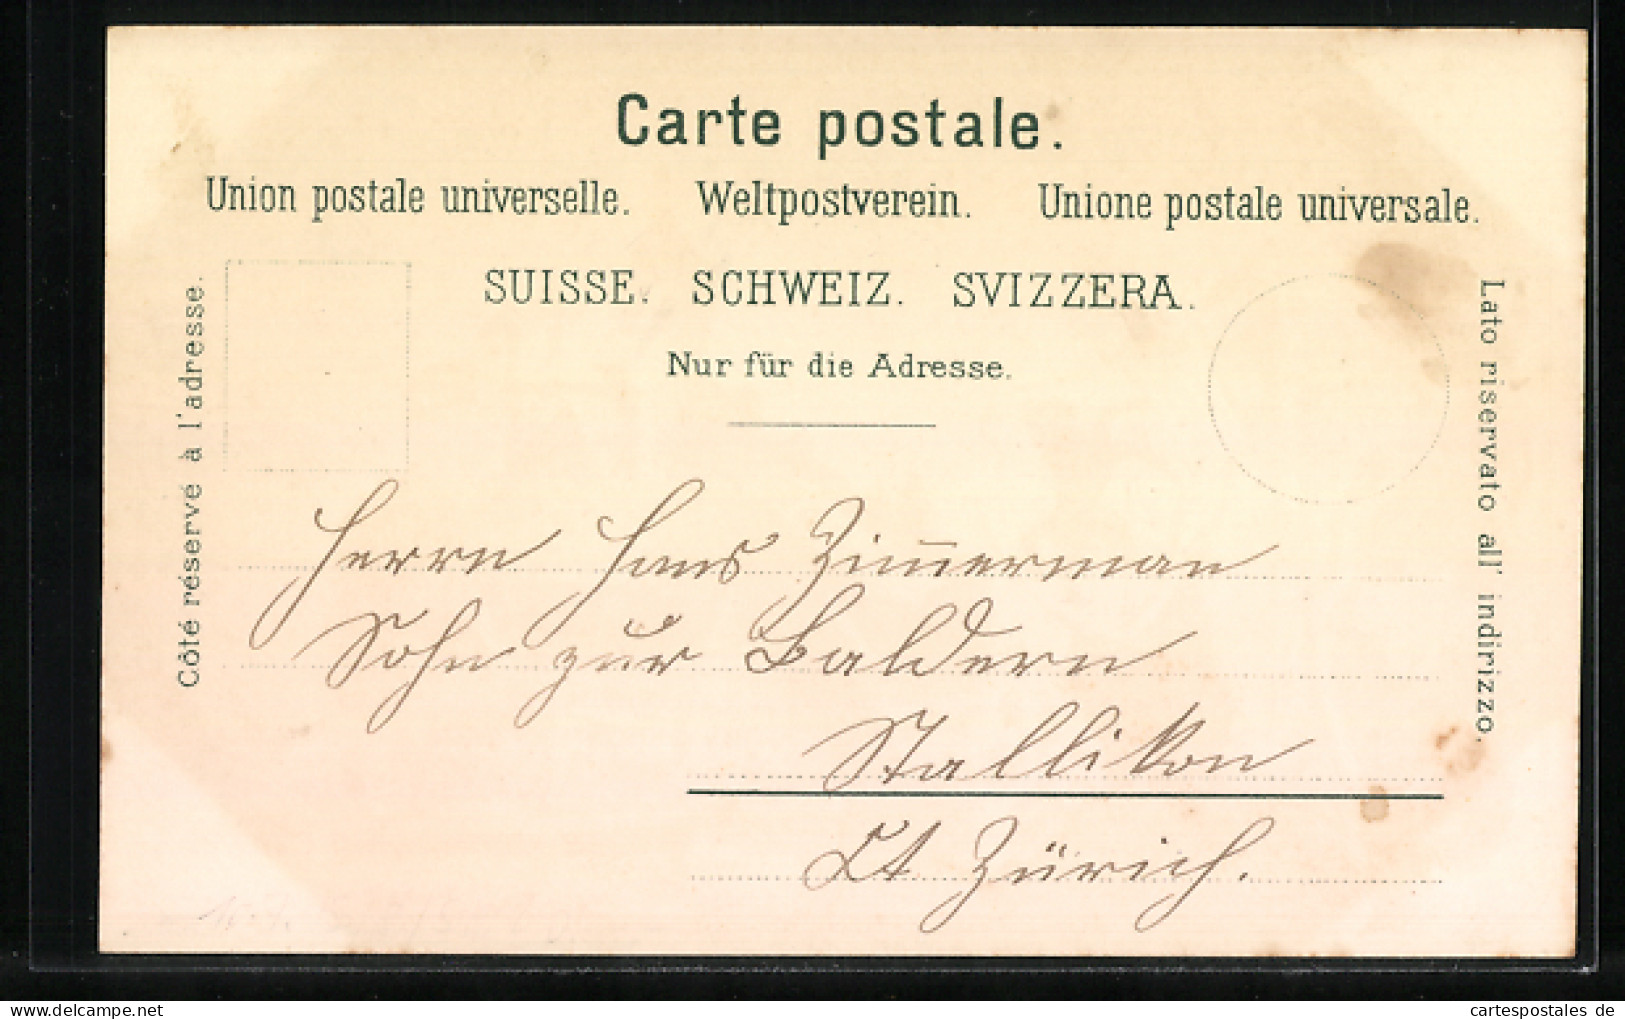 Carte postale.
Union postale universelle. Weltpostverein. Unione postale universale.
SUISSE. SCHWEIZ. SVIZZERA.
Nur für die Adresse.
Côté réservé à l'adresse.
Lato riservato all' indirizzo.
Herrn Hans Zim̅erman
Sohn zur Baldern
Stallikon
Ct Zürich.
cartespostales de